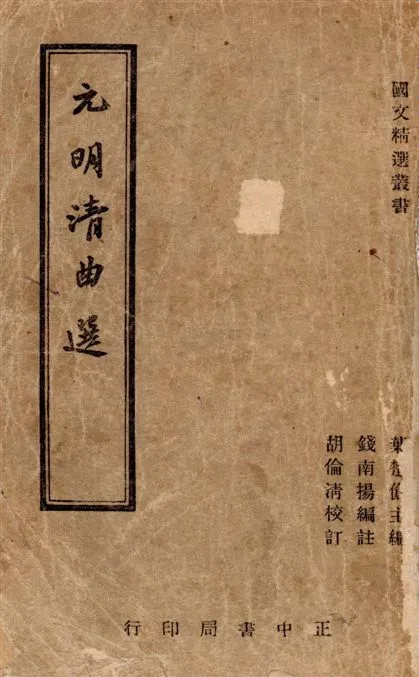 國文精選叢書
葉楚傖主編
錢南揚編註
胡倫清校訂
元明清曲選
正中書局印行